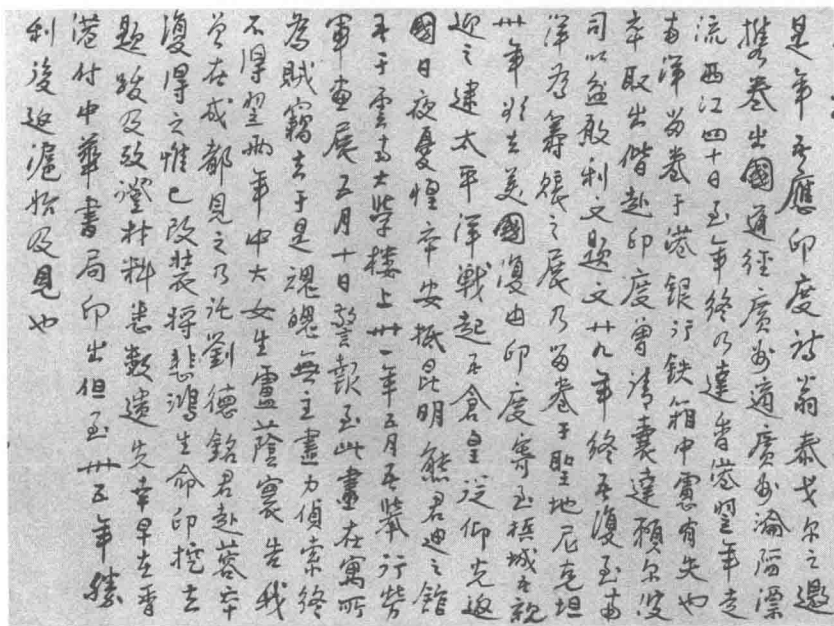 是年吾應印度詩翁泰戈尔之邀
携卷出國通經廣州適廣州淪陷漂
流西江四十日至年終乃達香港翌年走
南洋留卷于港銀行鉄箱中慮有失也
卒取出偕赴印度曾請囊達賴尔波
司以盆敢利文題文廿九年終吾復至南
洋為籌賑之展乃留卷于聖地尼克坦
卅年欲去美國復由印度寄至檳城吾親
迎之逮太平洋戰起吾倉皇從仰光返
國日夜憂惶卒安抵昆明熊君迪之館
吾于雲南大學樓上卅一年五月吾舉行勞
軍畫展五月十日警報至此畫在寓所
為賊竊去于是魂魄無主盡力偵索終
不得翌兩年中大女生盧蔭寰告我
曾在成都見之乃託劉德銘君赴蓉卒
復得之惟已改裝將悲鴻生命印挖去
題跋及攷證材料悉數遺失幸早在香
港付中華書局印出但至卅五年勝
利後返滬始及見也